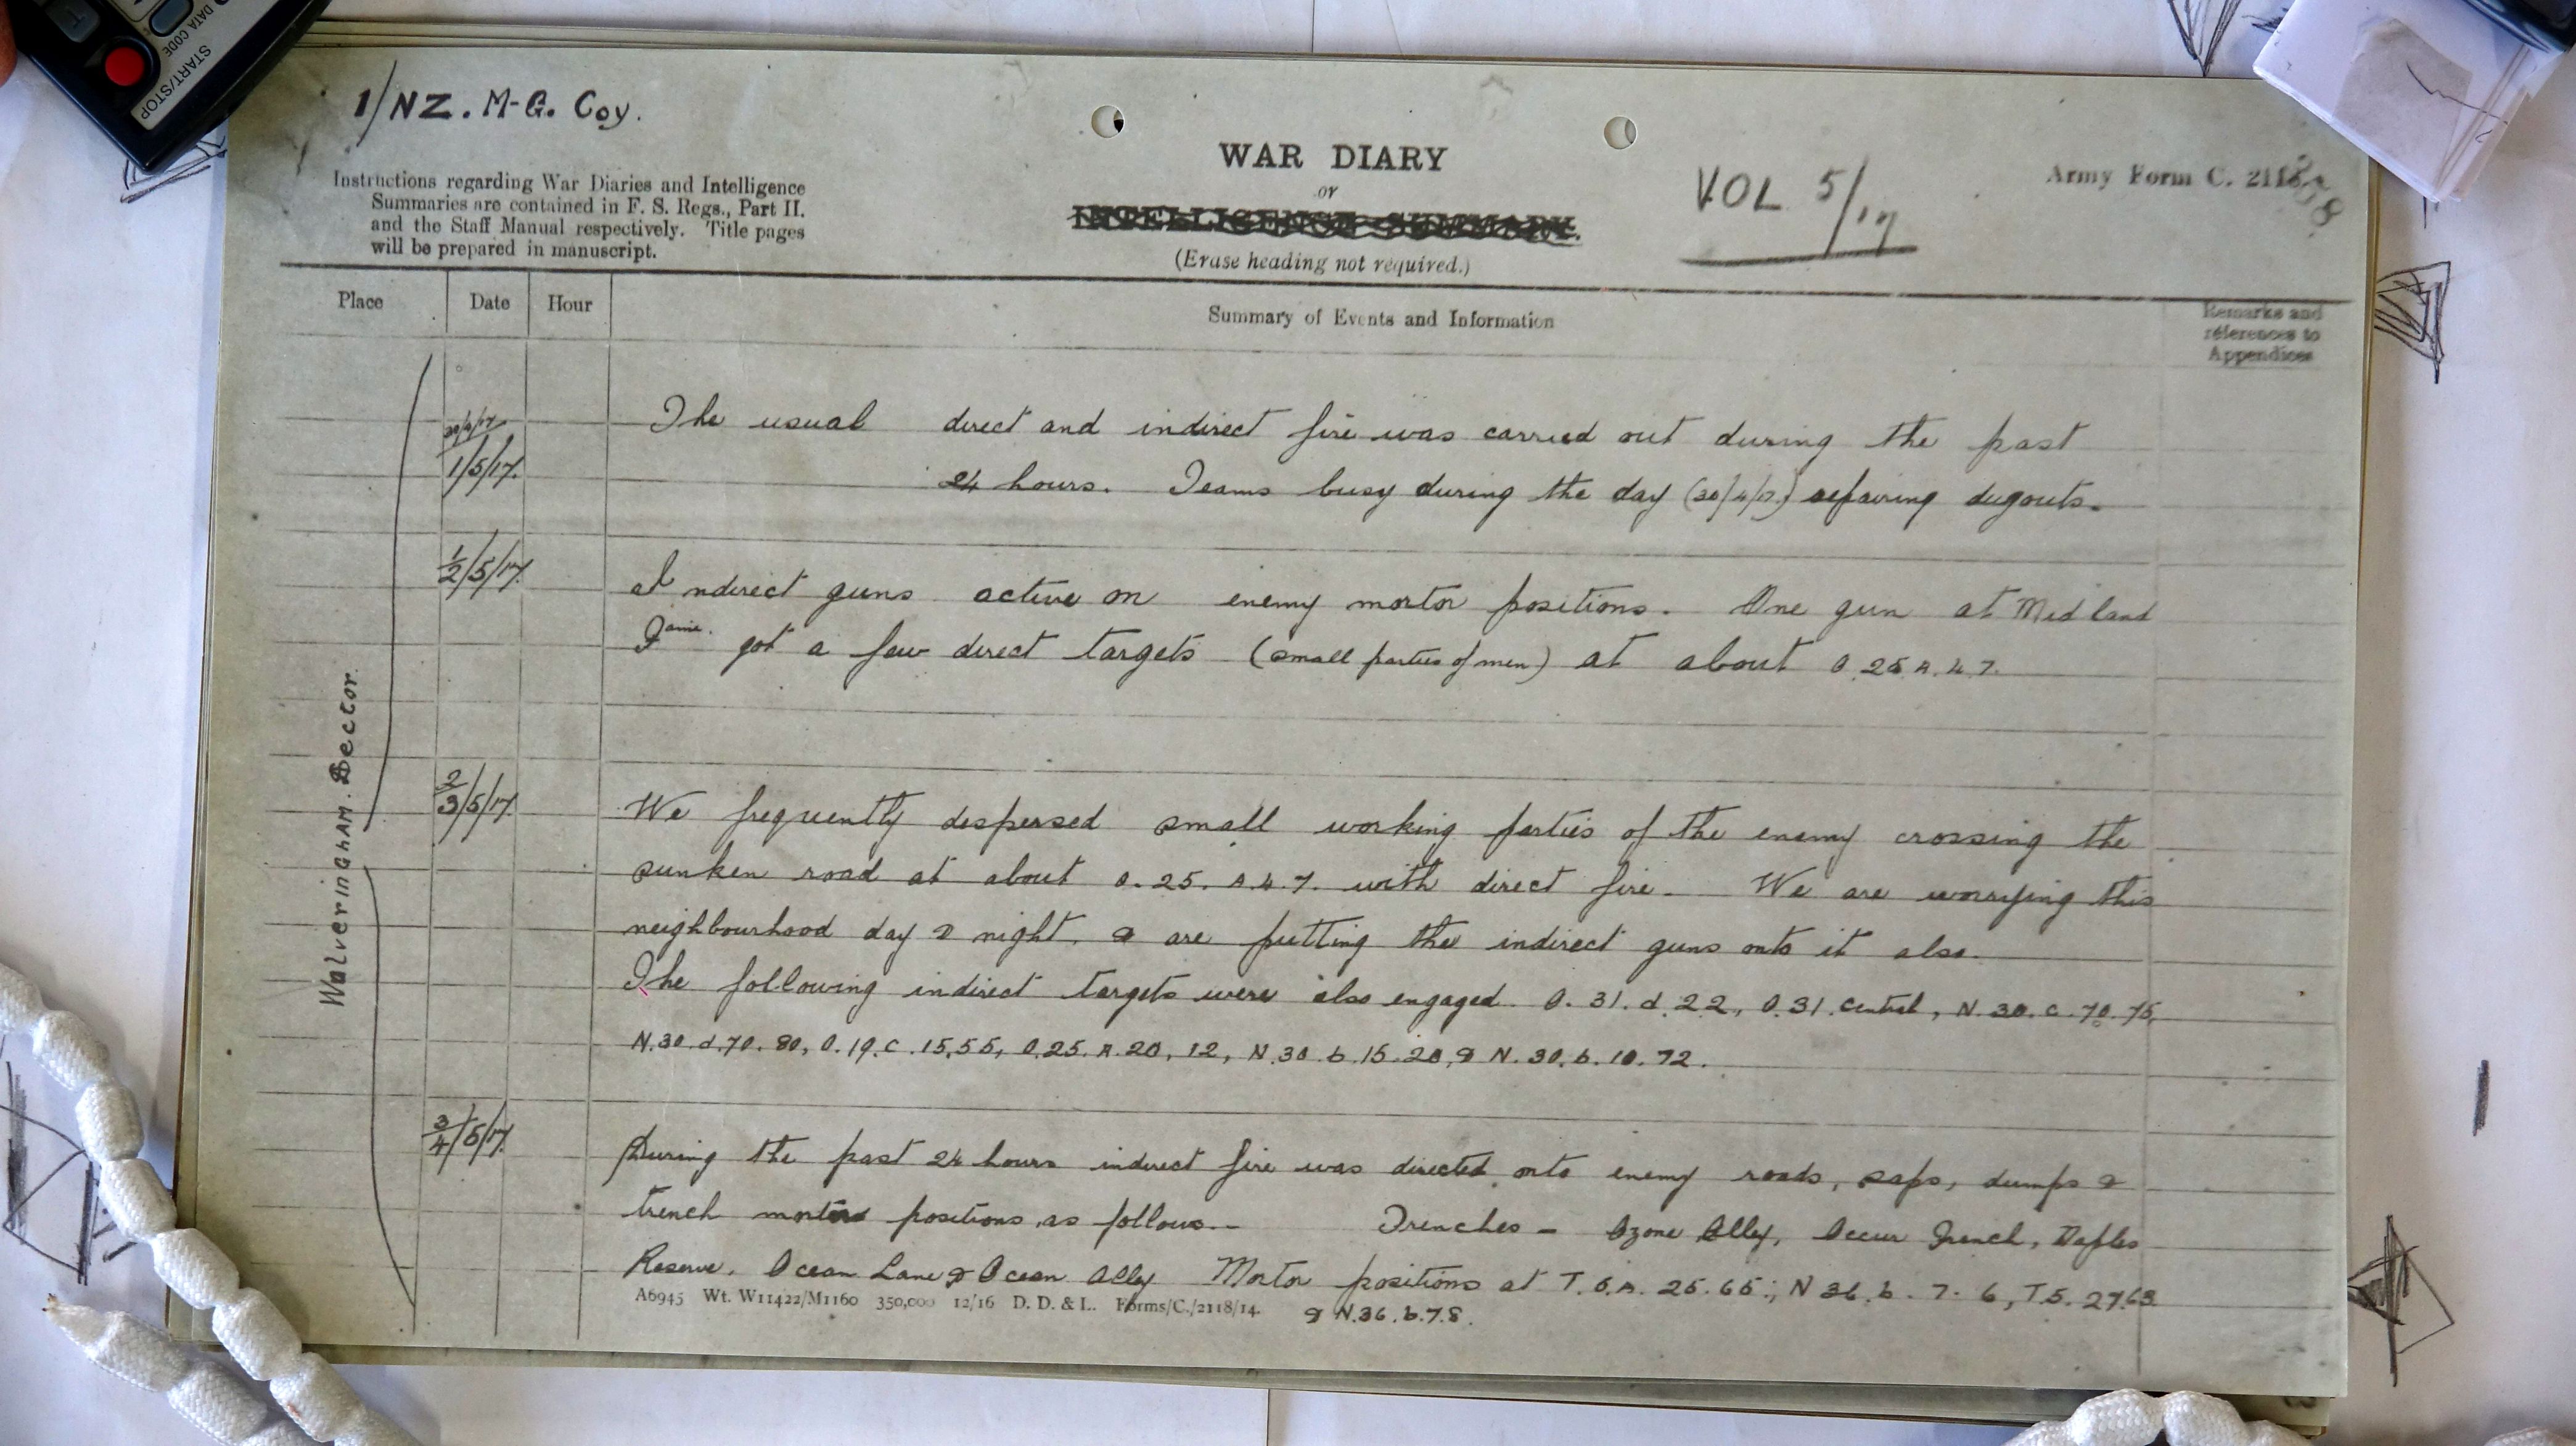 DATA CODE
START/STOP
1/NZ. M-G. Coy.
Instructions regarding War Diaries and Intelligence
Summaries are contained in F. S. Regs., Part II.
and the Staff Manual respectively. Title pages
will be prepared in manuscript.
WAR DIARY
or
INTELLIGENCE SUMMARY.
(Erase heading not required.)
VOL 5/17
Army Form C. 2118.
Place
Date
Hour
Summary of Events and Information
Remarks and
references to
Appendices
Walveringham. Sector.
30/4/17
1/5/17.
The usual direct and indirect fire was carried out during the past
24 hours. Teams busy during the day (30/4/17) repairing dugouts.
1/2/5/17.
Indirect guns active on enemy mortor positions. One gun at Midland
got a few direct targets (small parties of men) at about O.25.A.4.7.
2/3/5/17.
We frequently despersed small working parties of the enemy crossing the
sunken road at about O.25.A.4.7. with direct fire. We are worrying this
neighbourhood day & night, & are putting the indirect guns onto it also.
The following indirect targets were also engaged. O.31.d.22, O.31.central, N.30.c.70.75,
N.30.d.70.80, O.19.c.15,55, O.25.A.20,12, N.30.b.15.20,& N.30.b.10.72.
3/4/5/17.
During the past 24 hours indirect fire was directed onto enemy roads, saps, dumps &
trench mortor positions, as follows.- Trenches - Ozone Alley, Occur Trench,
Reserve. Ocean Lane & Ocean Alley Mortor positions at T.6.A.25.65.; N 36.b.7.6, T5.27.63
& N.36.b.7.8.
A6945 Wt. W11422/M1160 350,000 12/16 D. D. & L. Forms/C./2118/14.